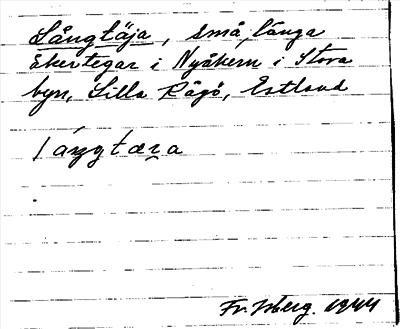 Långtäja, små långa
åkertegar i Nyåkern i Stora
byn, Lilla Rågö, Estland
láŋgtæɾa
Fr. Isberg. 1944